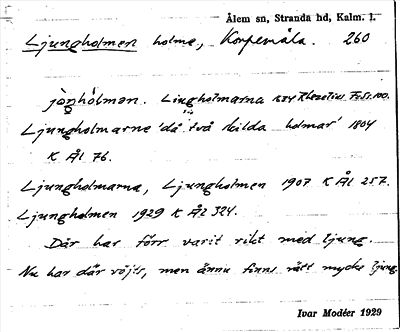 Ålem sn, Stranda hd, Kalm. l.
Ljungholmen holme, Korpemåla. 260
jòŋhólmən. Liugholmarna 1684 Rhezelius F.s.100.
Ljungholmarne 'då två skilda holmar' 1804
K ÅL 76.
Ljungholmarna, Ljungholmen 1907 K ÅL 257.
Ljungholmen 1929 K ÅL 324.
Där har förr varit rikt med ljung.
Nu har där röjts, men ännu finns rätt mycke ljung
Ivar Modéer 1929